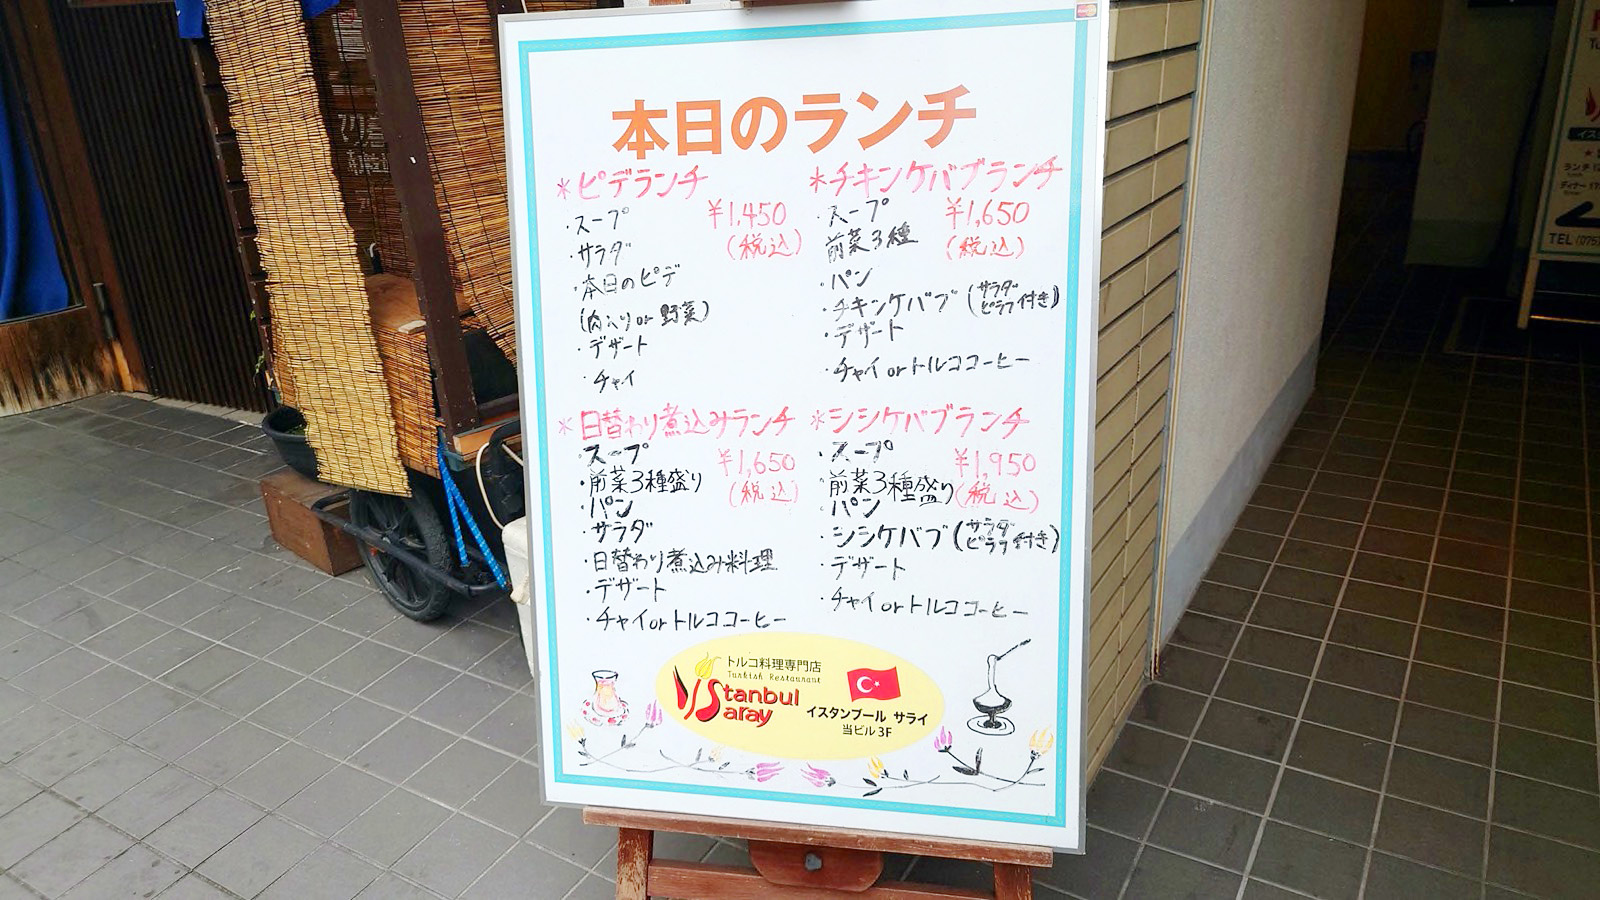 本日のランチ
*ピデランチ
¥1,450
(税込)
・スープ
・サラダ
・本日のピデ
(肉入り or 野菜)
・デザート
・チャイ
*チキンケバブランチ
¥1,650
(税込)
・スープ
前菜3種
・パン
・チキンケバブ (サラダ ピラフ付き)
・デザート
・チャイ or トルココーヒー
*日替わり煮込みランチ
¥1,650
(税込)
スープ
・前菜3種盛り
・パン
・サラダ
・日替わり煮込み料理
・デザート
・チャイ or トルココーヒー
*シシケバブランチ
¥1,950
(税込)
・スープ
・前菜3種盛り
・パン
・シシケバブ (サラダ ピラフ付き)
・デザート
・チャイ or トルココーヒー
トルコ料理専門店
Turkish Restaurant
Istanbul
Saray
イスタンブール サライ
当ビル3F
ランチ
ディナー
TEL (075